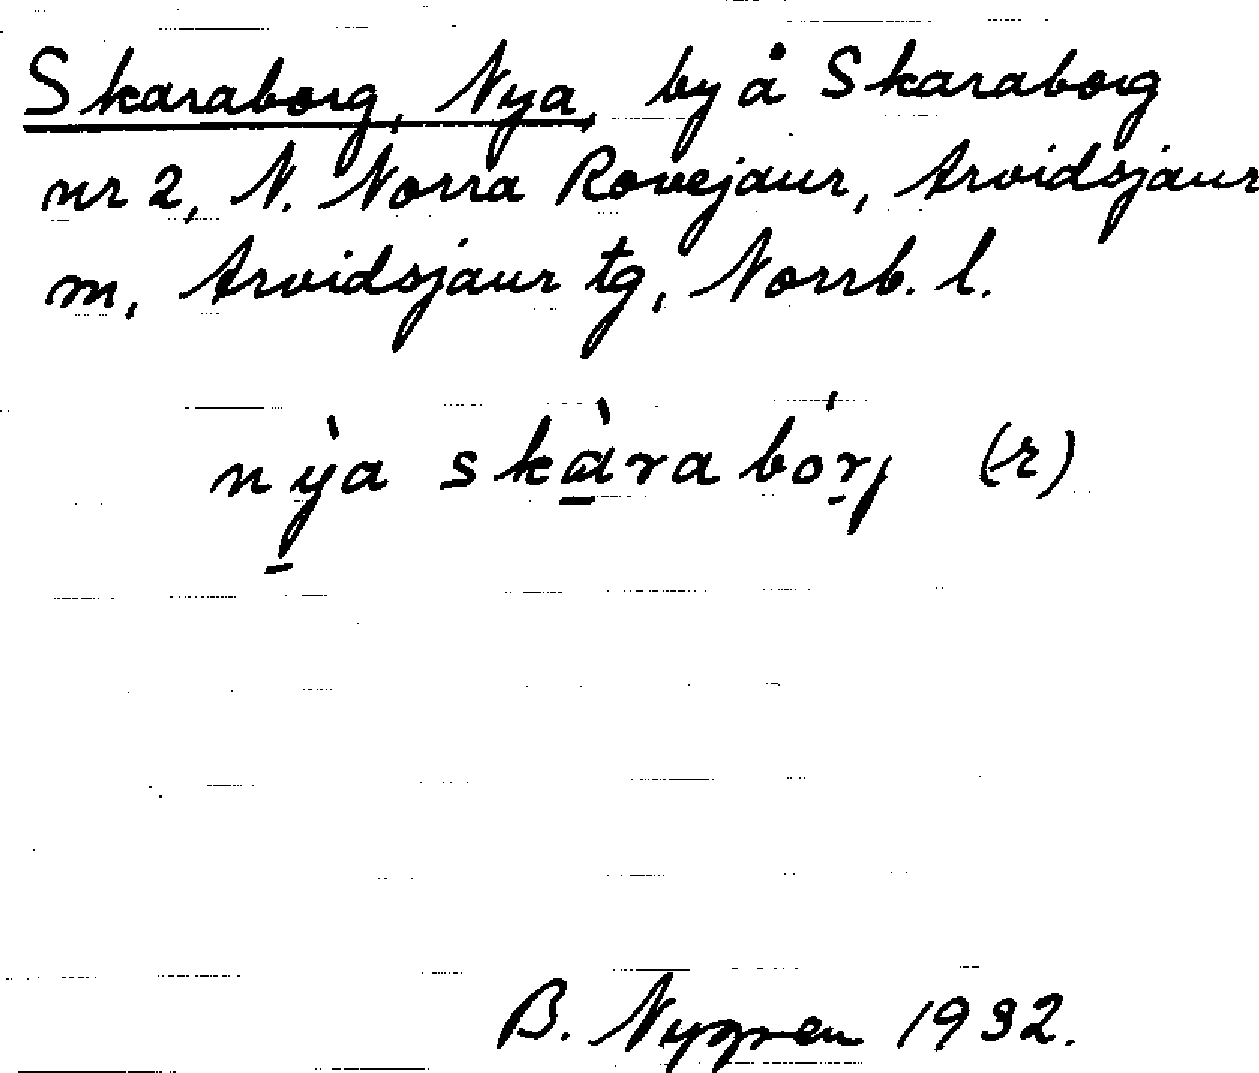 Skaraborg, Nya, by å Skaraborg
nr 2, N. Norra Rovejaur, Arvidsjaur
m, Arvidsjaur tg, Norrb. l.
nỳ̠a skà̠rabór̠j (r)
B. Nygren 1932.